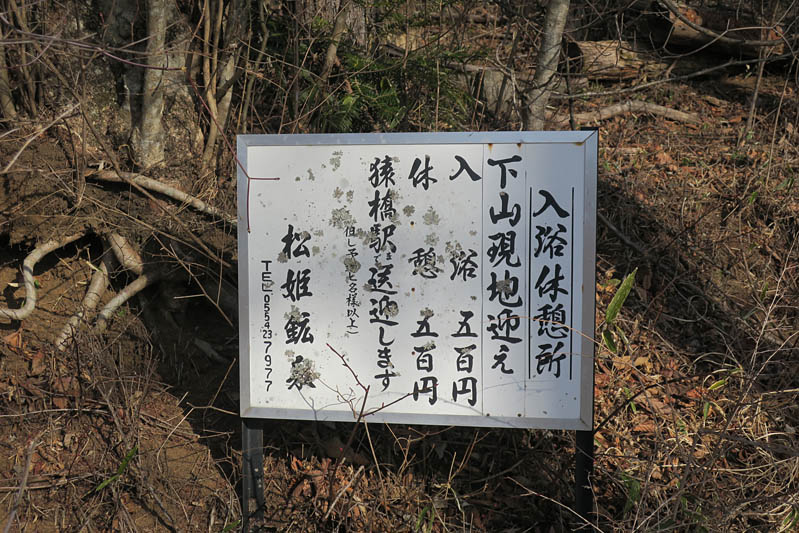 入浴休憩所
下山現地迎え
入浴 五百円
休憩 五百円
猿橋駅まで送迎します
松姫鉱泉
TEL0554237977